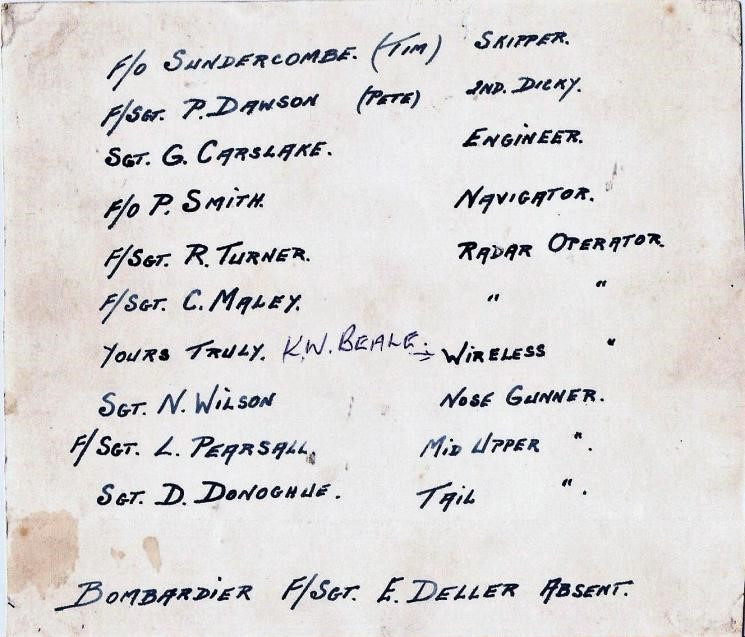 F/O SUNDERCOMBE. (TIM) SKIPPER.
F/SGT. P. DAWSON (PETE) 2ND. DICKY.
SGT. G. CARSLAKE. ENGINEER.
F/O P. SMITH. NAVIGATOR.
F/SGT. R. TURNER. RADAR OPERATOR.
F/SGT. C. MALEY. " "
YOURS TRULY. K.W. BEALE. → WIRELESS "
SGT. N. WILSON NOSE GUNNER.
F/SGT. L. PEARSALL. MID UPPER ".
SGT. D. DONOGHUE. TAIL ".
BOMBARDIER F/SGT. E. DELLER ABSENT.